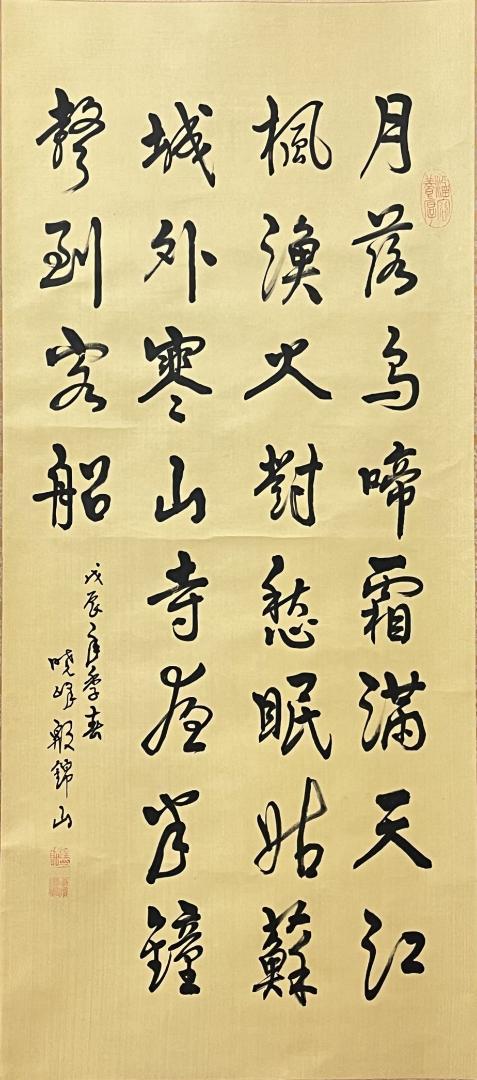 月落烏啼霜滿天江
楓漁火對愁眠姑蘇
城外寒山寺夜半鐘
聲到客船
戊辰年季春
曉峰殷錦山